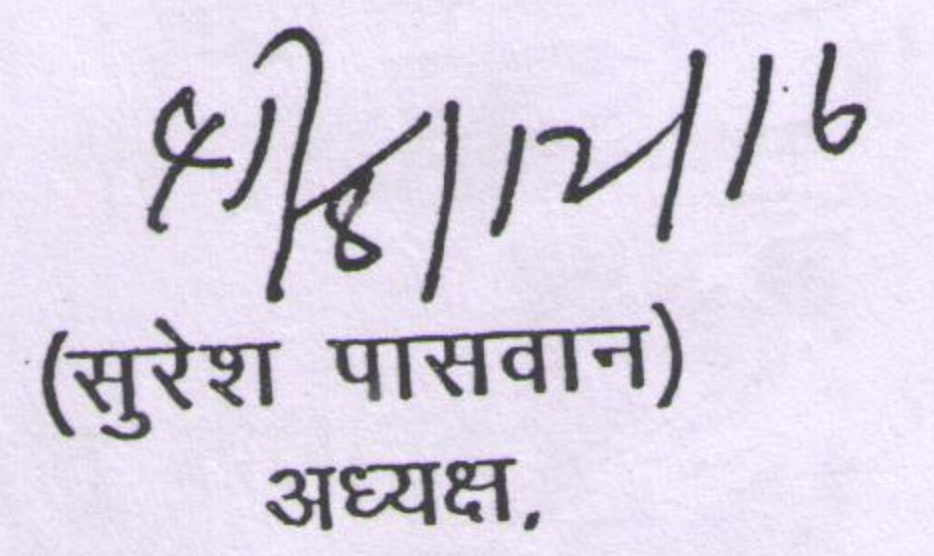 8/12/16
(सुरेश पासवान)
अध्यक्ष,